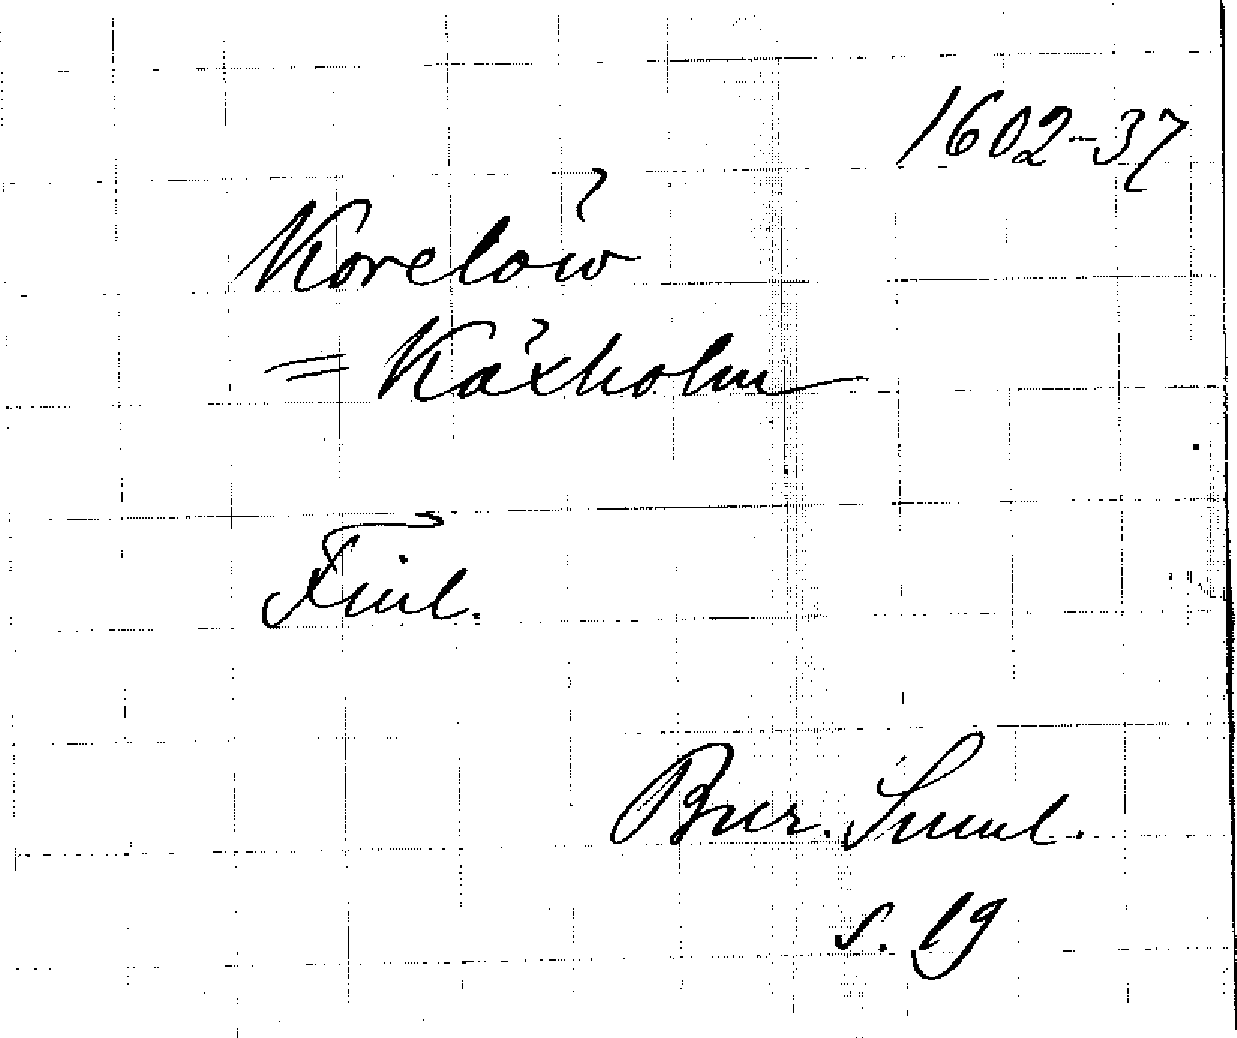 1602-37
Korelow
= Käxholm
Finl.
Bur. Suml.
s. 19